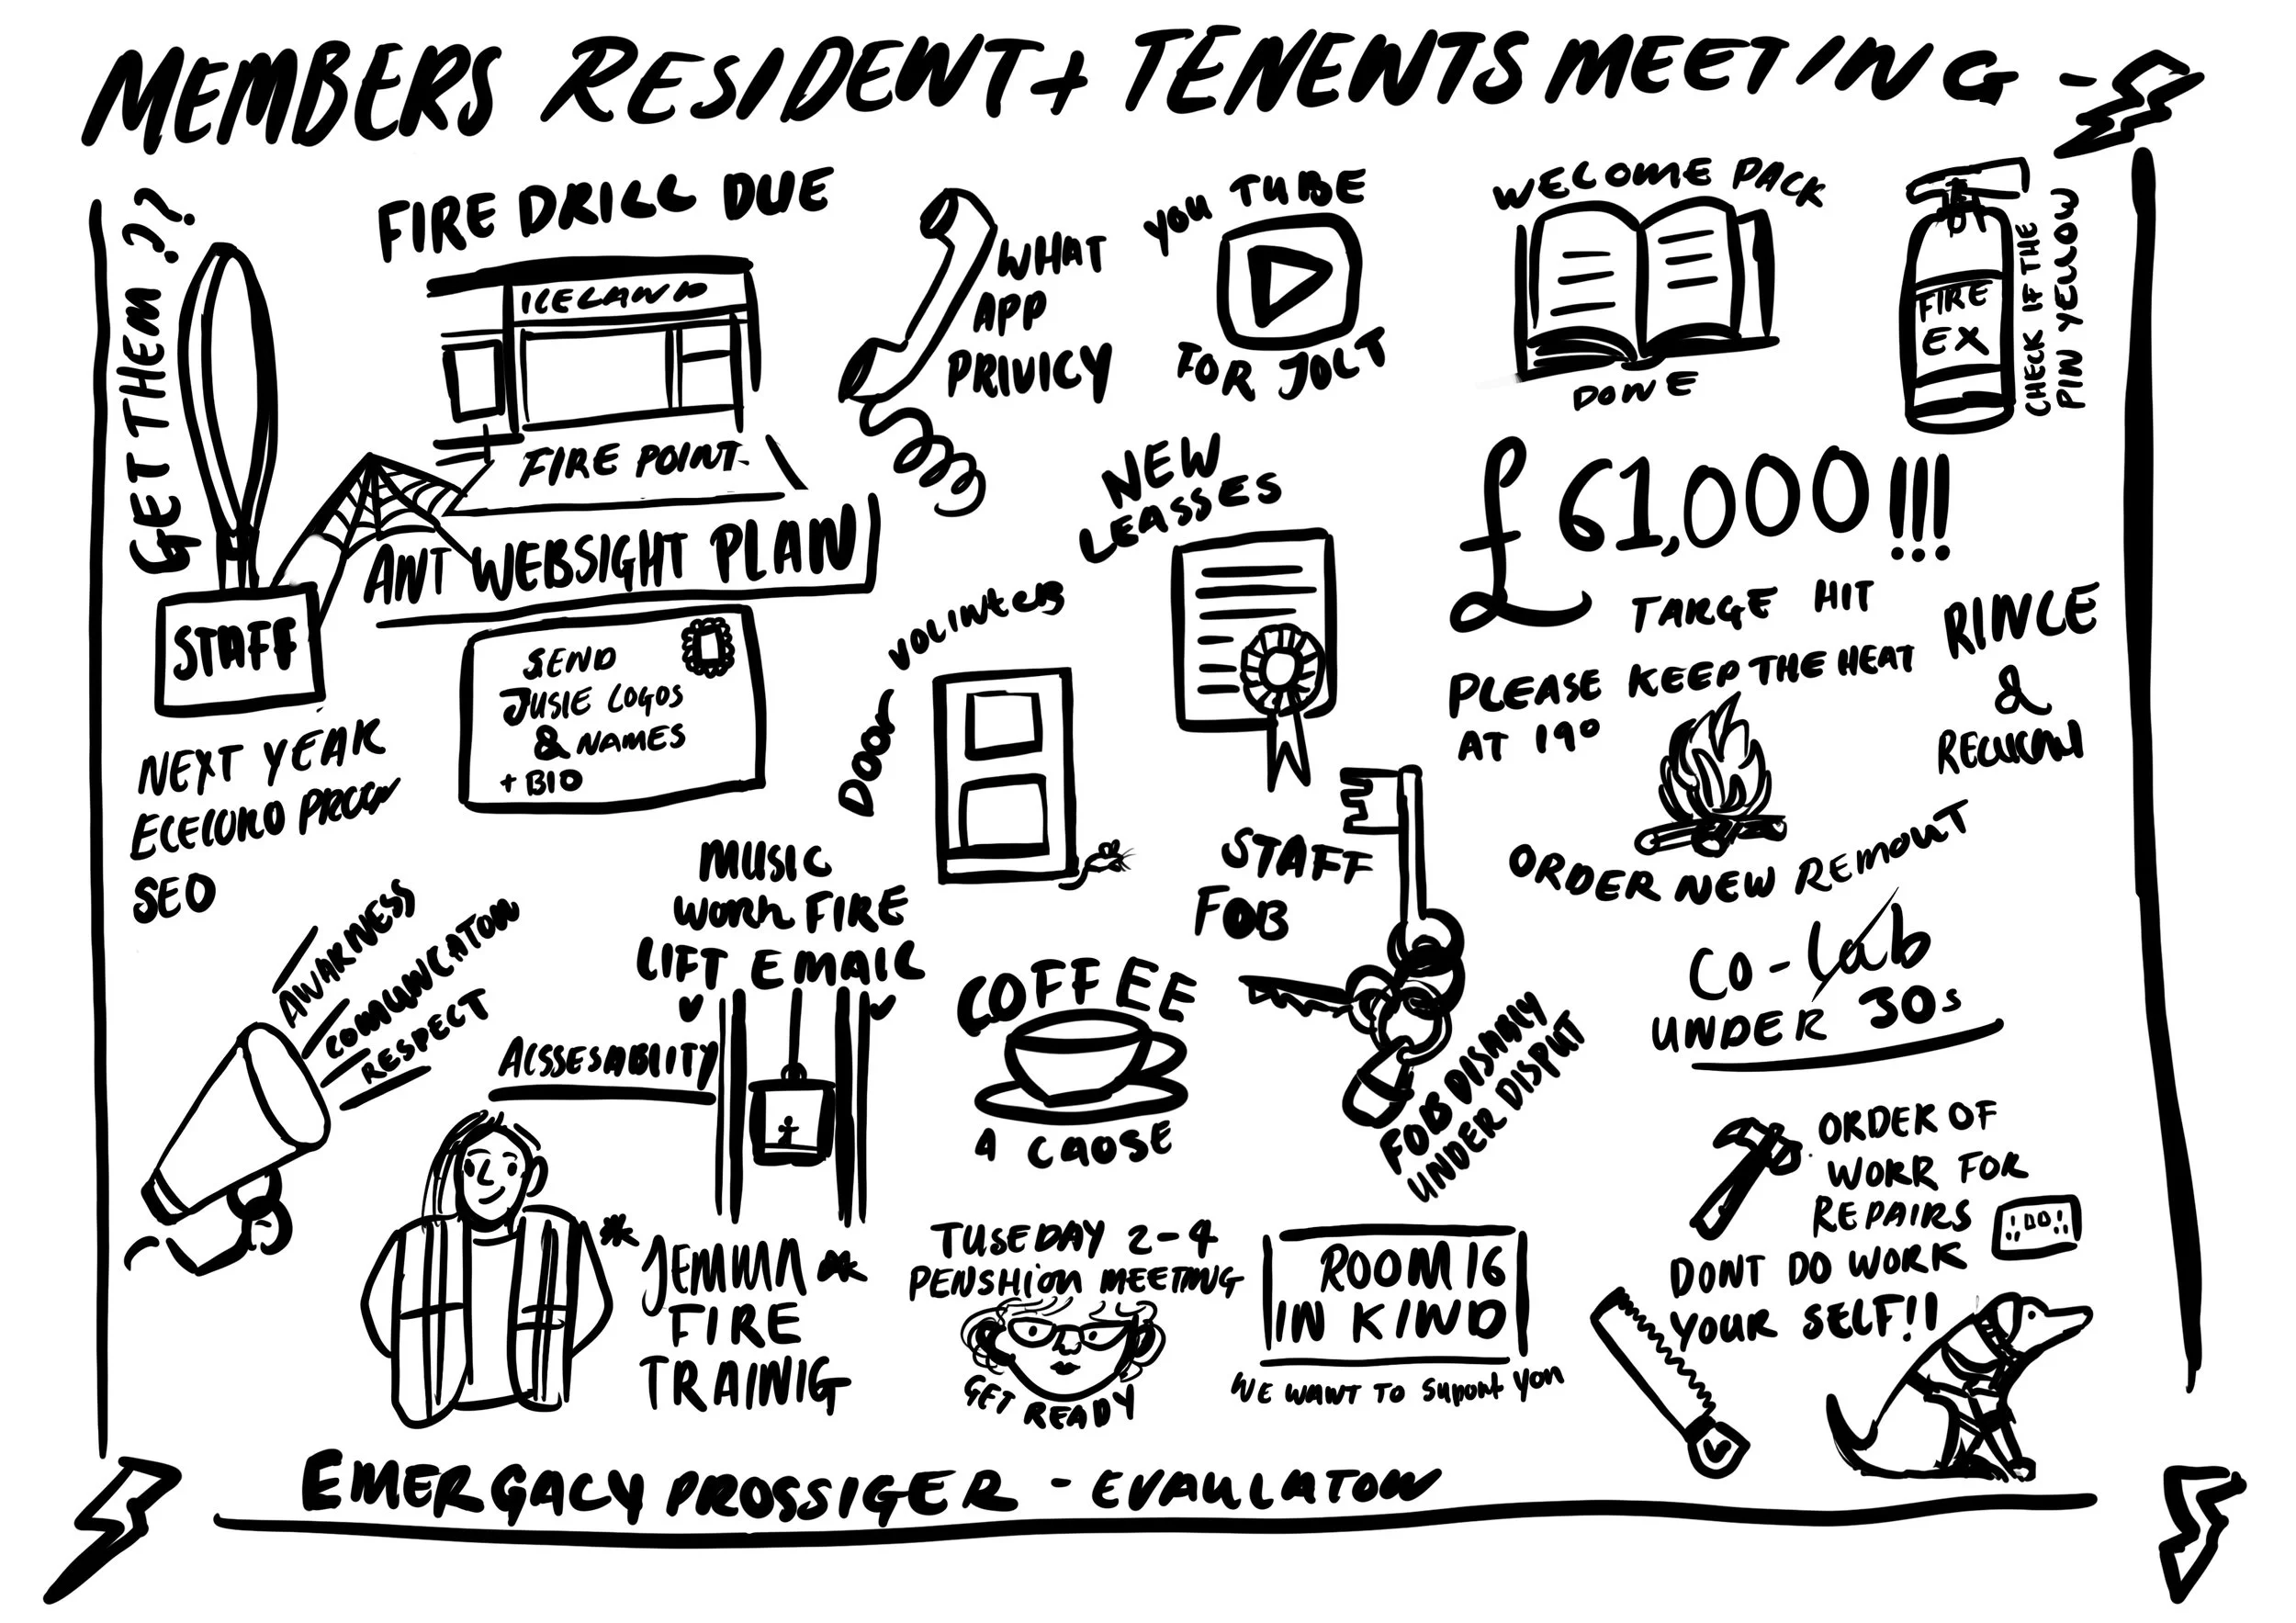 MEMBERS RESIDENT + TENENTS MEETING -
GET THEM ??
STAFF
FIRE DRILL DUE
ICELAND
FIRE POINT
WHAT
APP
PRIVICY
YOU TUBE
FOR JOLT
WELCOME PACK
DONE
FIRE
EX
CHECK IF THE
PIN YELLOW
ANT WEBSIGHT PLAN
SEND
JUSIE LOGOS
& NAMES
+ BIO
NEW
LEASSES
£61,000!!!
TARGE HIT
PLEASE KEEP THE HEAT
AT 19°
RINCE
&
DOOR
VOLINTERS
NEXT YEAR
SEO
ORDER NEW REMOUT
MUSIC
WORK FIRE
LIFT EMAIL
STAFF
FOB
CO-Lab
UNDER 30s
AWARNESS
COMMUNCATON
RESPECT
ACSSESABLITY
COFFEE
A CAOSE
FOB DISABLY
UNDER DISPUT
ORDER OF
WORR FOR
REPAIRS
DONT DO WORK
YOUR SELF!!
* JEMMA *
FIRE
TRAINIG
TUSEDAY 2-4
PENSHION MEETING
GET READY
ROOM 16
IN KIND
WE WANT TO SUPORT YOU
EMERGACY PROSSIGER - EVAULATON